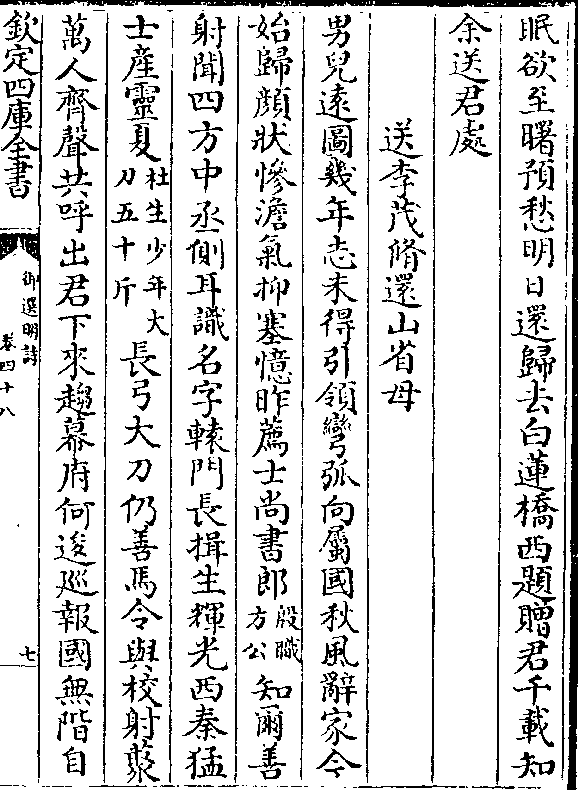 眠欲至曙預愁明日還歸去白蓮橋西題贈君千載知
余送君處
送李茂脩還山省母
男兒遠圖幾年志未得引領彎弧向屬國秋風辭家今
始歸顔狀慘澹氣抑塞憶昨薦士尚書郎殷職方公知爾善
射聞四方中丞側耳識名字轅門長揖生輝光西秦猛
士産靈夏杜生少年大刀五十斤長弓大刀仍善馬令與校射聚
萬人齊聲共呼出君下來趨幕府何逡廵報國無階自
欽定四庫全書
御選明詩
卷四十八
七